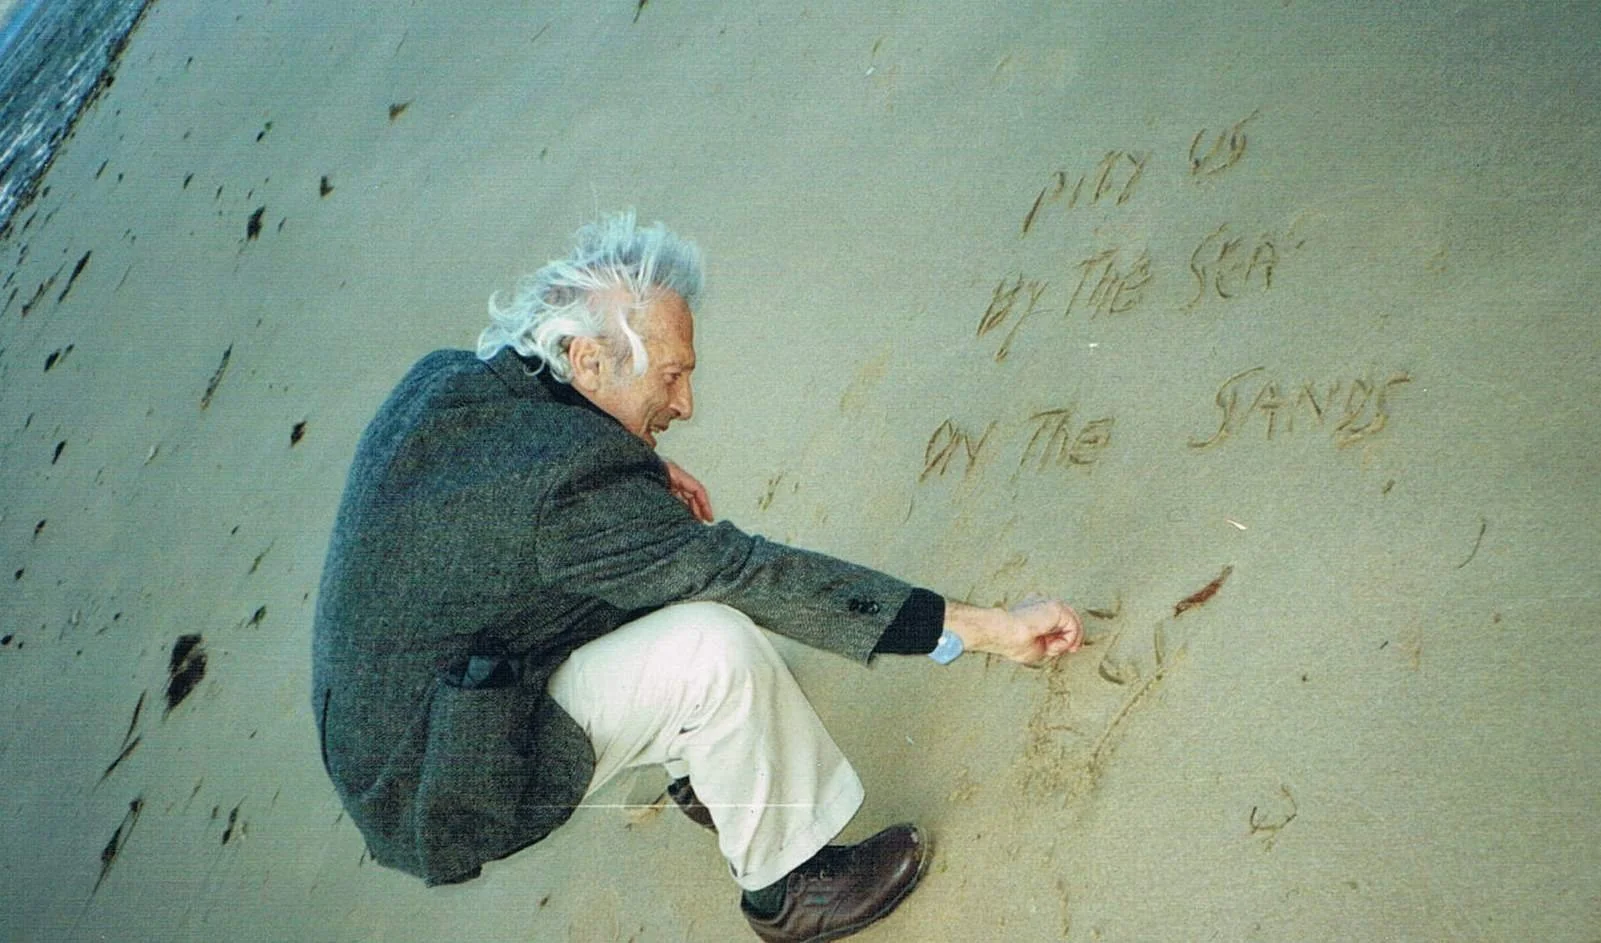 PITY US
BY THE SEA
ON THE SANDS